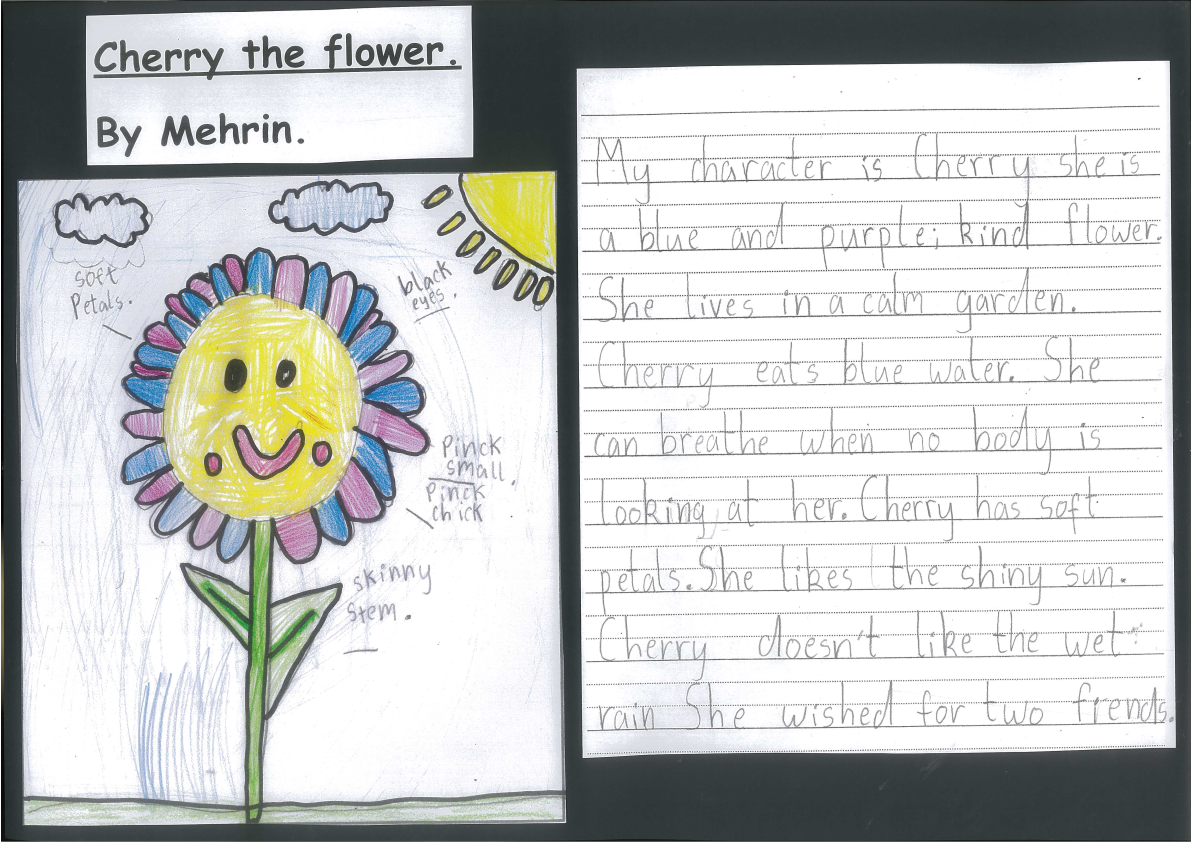 Cherry the flower.
By Mehrin.
soft
Petals.
black
eyes.
Pinck
small.
Pinck
chick
skinny
stem.
My character is Cherry she is
a blue and purple; kind flower.
She lives in a calm garden.
Cherry eats blue water. She
can breathe when no body is
looking at her. Cherry has soft
petals. She likes the shiny sun.
Cherry doesn't like the wet
rain She wished for two frends.